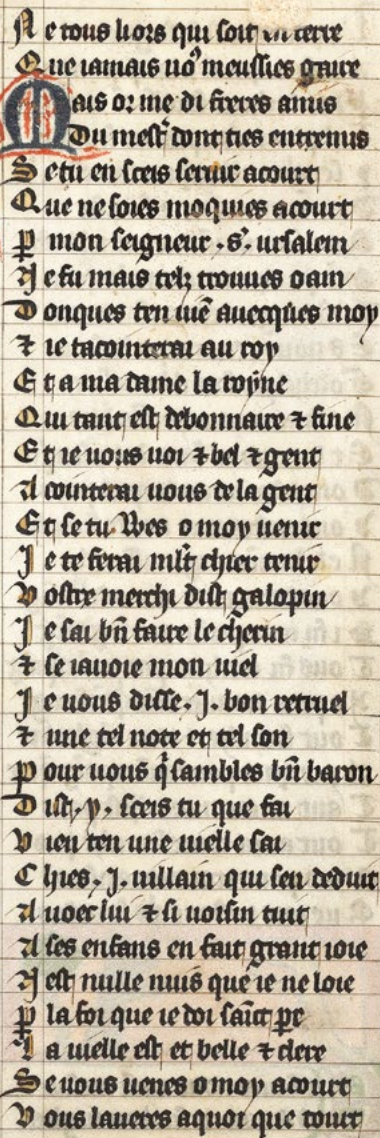 N e tous liors qui soit en terre
Q ue iamais uoꝰ meussies gaire
M ais or me di freres amis
Du mestͬ dont ties entremis
S e tu en sceis seruir a court
Q ue ne soies moquies a court
ꝑ mon seigneur .s. ursalem
N e fu mais telz trouues oam
D onques ten uiē auecques moy
⁊ ie tacointerai au roy
E t a ma dame la royne
Q ui tant est debonnaire ⁊ fine
E t ie uous uoi ⁊ bel ⁊ gent
A cointerai uous de la gent
E t se tu wes o moy uenir
J e te ferai mlt chier tenir
V ostre merchi dist galopin
J e sai bn̄ faire le cherin
⁊ se iauoie mon uiel
J e uous disse .J. bon retruel
⁊ une tel note et tel son
P our uous q̄ sambles bn̄ baron
D ist .y. sceis tu que fai
V ien ten une uielle sai
C hies .J. uillain qui sen deduit
A uoec lui ⁊ si uoisin tuit
A ses enfans en fait grant ioie
N est nulle nuis que ie ne loie
ꝑ la foi que ie doi saīt pe
L a uielle est et belle ⁊ clere
S e uous uenes o moy a court
V ous laueres a quoi que tourt